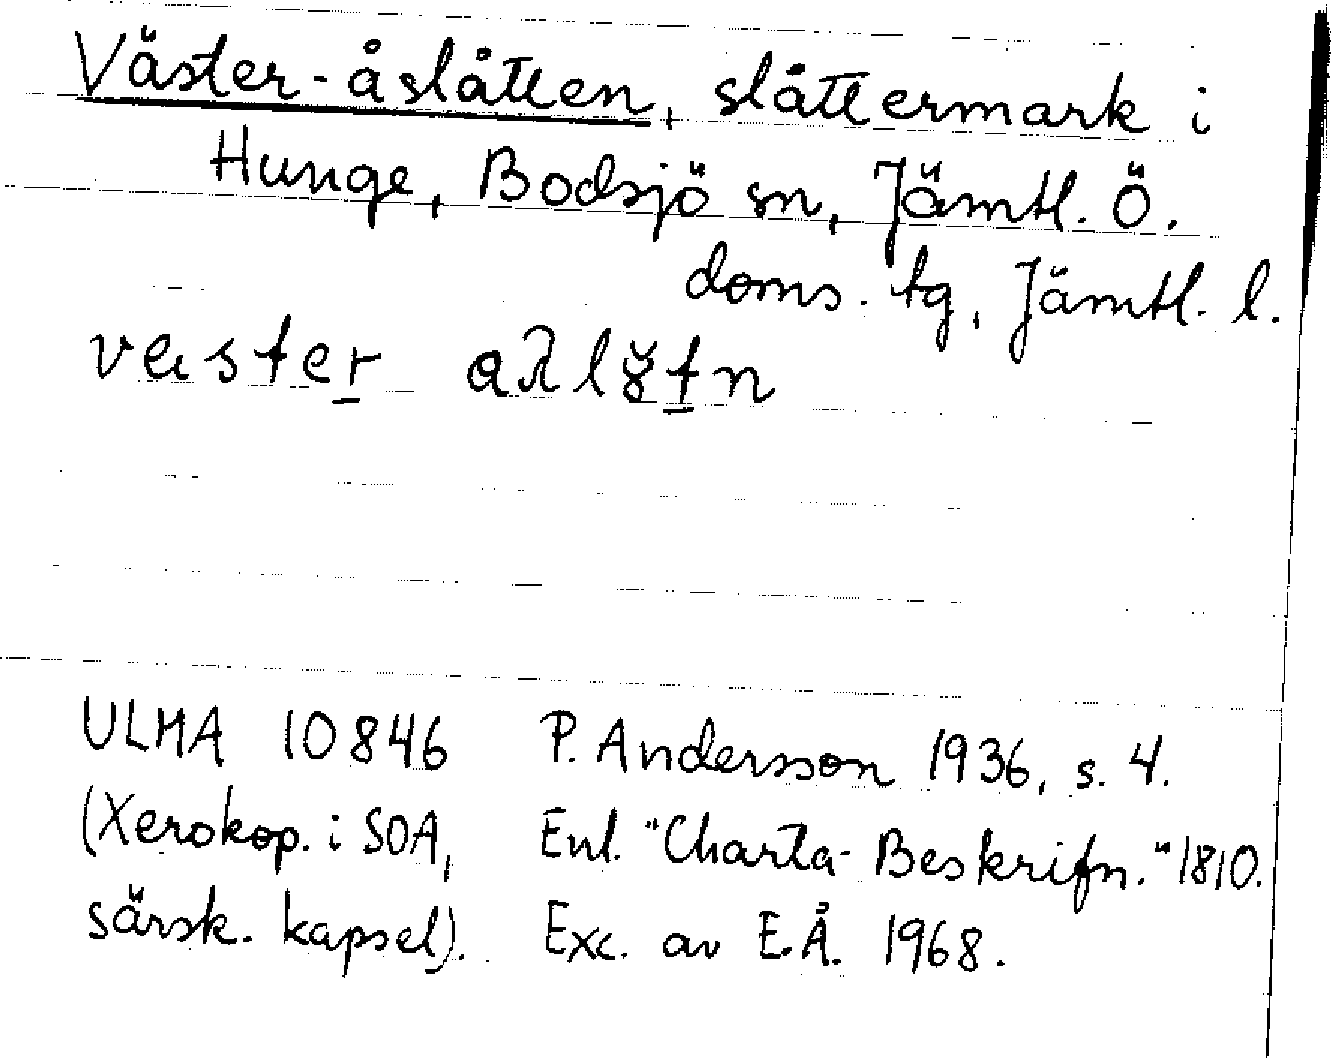 Väster-åslåtten, slåttermark i
Hunge, Bodsjö sn, Jämtl. Ö.
doms. tg, Jämtl. l.
ULMA 10846 P. Andersson 1936, s. 4.
(Xerokop. i SOA, Enl. "Charta-Beskrifn." 1810.
särsk. kapsel). Exc. av E.Å. 1968.